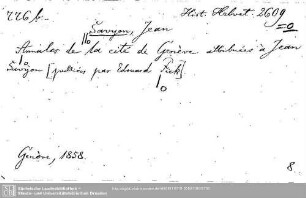 776 b.
Hist. Helvet. 2609
=0
Savyon, Jean
Annales de la cité de Genève attribuées à Jean
Savyon [publiées par Edouard Fick].
Genève, 1858.
8
Sächsische Landesbibliothek -
Staats- und Universitätsbibliothek Dresden